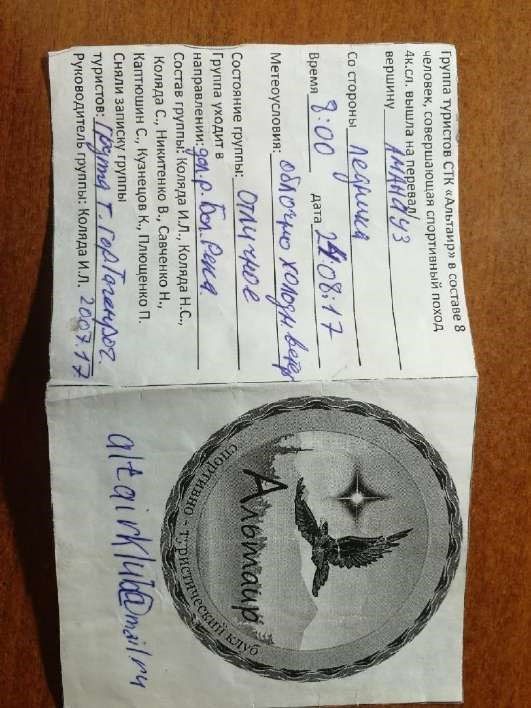 Группа туристов СТК «Альтаир» в составе 8
человек, совершающая спортивный поход
4к.сл. вышла на перевал/
вершину Аманауз
Со стороны ледника
Время 8:00 дата 24.08.17
Метеоусловия: облачно холодн. ветер
Состояние группы: отличное
Группа уходит в
направлении: дол.р. Бол. Лаба
Состав группы: Коляда И.Л., Коляда Н.С.,
Коляда С., Никитенко В., Савченко Н.,
Каптюшин С., Кузнецов К., Плющенко П.
Сняли записку группы
туристов: Группа Т. гор Таганрог.
Руководитель группы: Коляда И.Л. 2007.17
Альтаир
спортивно - туристический клуб
altairklub@mail.ru